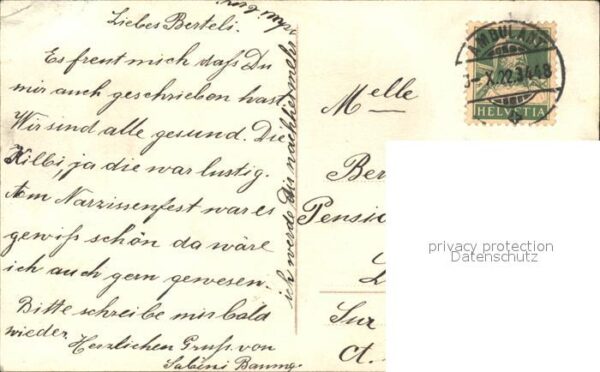 Liebes Berteli.
Es freut mich dass Du
mir auch geschrieben hast
Wir sind alle gesund. Die
Kilbi, ja die war lustig.
Am Narzissenfest war es
gewiss schön da wäre
ich auch gern gewesen.
Bitte schreibe mir bald
wieder.
Herzlichen Gruss von
Sabini
ich werde Dir nachher mehr
AMBULANT
X.22
HELVETIA
Melle
Ber
Pension
Sur
Ct.
privacy protection
Datenschutz